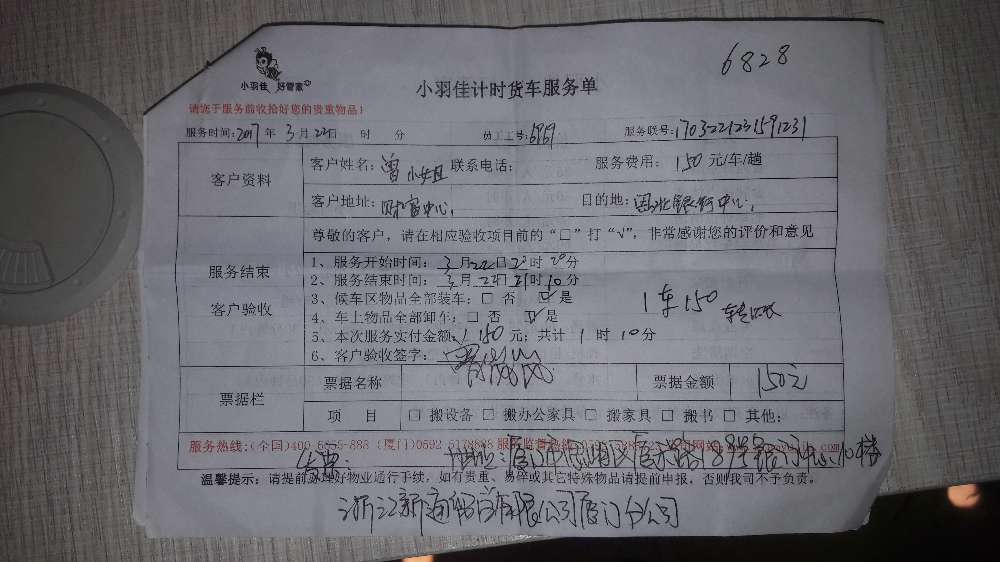 6828
小羽佳 好管家
小羽佳计时货车服务单
请您于服务前收拾好您的贵重物品！
服务时间：2017年 3月22日 时 分 员工工号：6969 服务联号：1703221231591231
客户资料
客户姓名：曾小姐 联系电话： 服务费用：150 元/车/趟
客户地址：财富中心 目的地：国际银行中心
服务结束
客户验收
尊敬的客户，请在相应验收项目前的“□”打“√”，非常感谢您的评价和意见
1、服务开始时间：3月22日20时20分
2、服务结束时间：3月22日21时10分
3、候车区物品全部装车：□ 否 ☑ 是
4、车上物品全部卸车：□ 否 ☑ 是
1车150
5、本次服务实付金额：150 元；共计 1 时 10分
6、客户验收签字：
票据栏
票据名称 票据金额 150元
项 目 □ 搬设备 □ 搬办公家具 □ 搬家具 □ 搬书 □ 其他：
服务热线：(全国)400- (厦门)0592 5178888 服务监督热线
发票： 地址：厦门市思明区 18号 10楼
温馨提示：请提前办理好物业通行手续，如有贵重、易碎或其它特殊物品请提前申报，否则我司不予负责。
浙江新通 有限公司厦门分公司